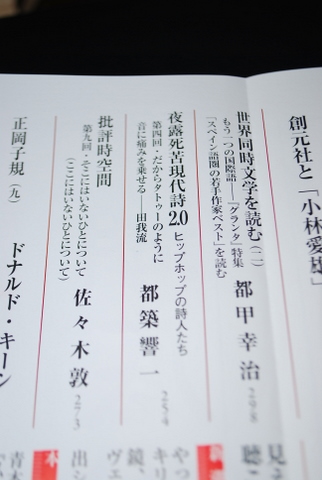 創元社と「小林愛雄」
世界同時文学を読む（二）
もう一つの国際語――『グランタ』特集
「スペイン語圏の若手作家ベスト」を読む
都甲幸治
298
夜露死苦現代詩2.0 ヒップホップの詩人たち
第四回・だからタトゥーのように
音に痛みを乗せる――田我流
都築響一
254
批評時空間
第九回・そこにはいないひとについて
（ここにはいないひとについて）
佐々木敦
273
正岡子規（九）
ドナルド・キーン
見え
聴こ
やっ
キリ
鏡、
ヴェ
出シ
本
青木